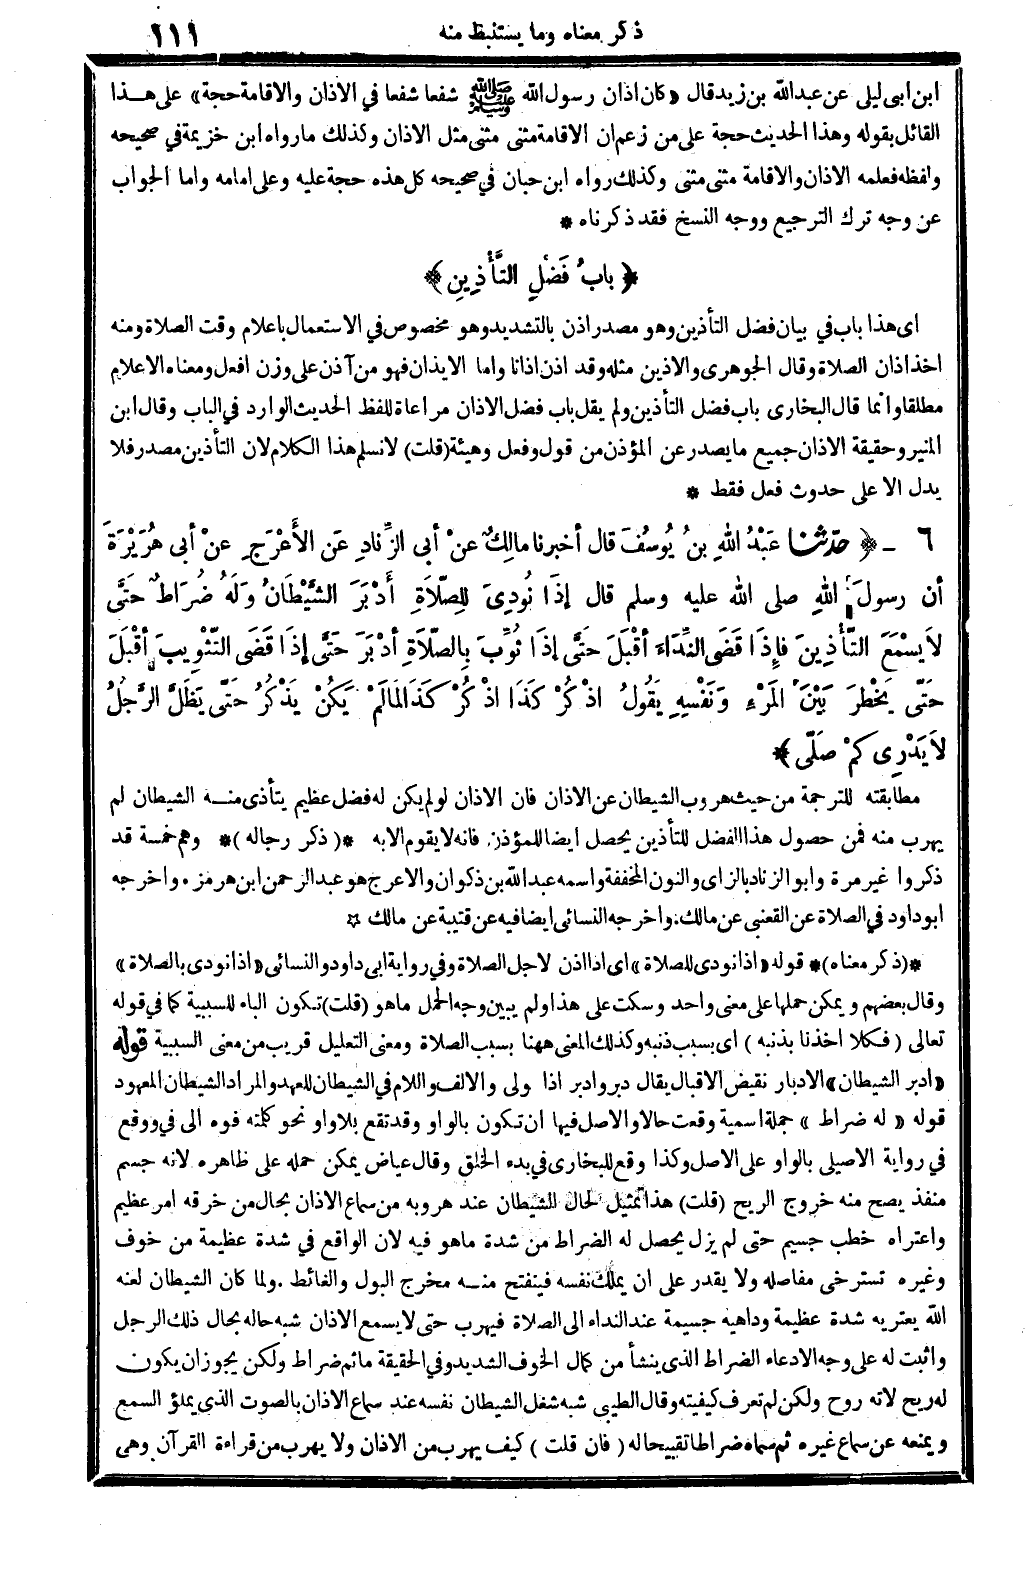 ذكر معناه وما يستنبط منه ١١١
ابن ابى ليلى عن عبدالله بن زيد قال «كان اذان رسول الله ﷺ شفعا شفعا في الاذان والاقامة حجة» على هذا
القائل بقوله وهذا الحديث حجة على من زعم ان الاقامة مثنى مثنى مثل الاذان وكذلك ما رواه ابن خزيمة في صحيحه
ولفظه فعلمه الاذان والاقامة مثنى مثنى وكذلك رواه ابن حبان في صحيحه كل هذه حجة عليه وعلى امامه واما الجواب
عن وجه ترك الترجيع ووجه النسخ فقد ذكرناه *
﴿ بابُ فَضْلِ التَّأْذِينِ ﴾
اى هذا باب في بيان فضل التأذين وهو مصدر اذن بالتشديد وهو مخصوص في الاستعمال باعلام وقت الصلاة ومنه
اخذ اذان الصلاة وقال الجوهرى والاذين مثله وقد اذن اذانا واما الايذان فهو من آذن على وزن افعل ومعناه الاعلام
مطلقا وانما قال البخارى باب فضل التأذين ولم يقل باب فضل الاذان مراعاة للفظ الحديث الوارد في الباب وقال ابن
المنير وحقيقة الاذان جميع ما يصدر عن المؤذن من قول وفعل وهيئة (قلت) لا نسلم هذا الكلام لان التأذين مصدر فلا
يدل الا على حدوث فعل فقط *
٦ - ﴿ حدثنا عَبْدُ اللهِ بنُ يُوسُفَ قال أخبرنا مالِكٌ عنْ أبى الزِّنادِ عَنِ الأَعْرَجِ عنْ أبى هُرَيْرَةَ
أن رسولَ اللهِ صلى الله عليه وسلم قال إذَا نُودِىَ لِلصَّلاَةِ أَدْبَرَ الشَّيْطَانُ وَلَهُ ضُرَاطٌ حَتَّى
لاَ يَسْمَعَ التَّأْذِينَ فإِذَا قَضَى النِّدَاءَ أقْبَلَ حَتَّى إذَا ثُوِّبَ بِالصَّلاَةِ أدْبَرَ حَتَّى إذَا قَضَى التَّثْوِيبَ أقْبَلَ
حَتَّى يَخْطِرَ بَيْنَ المَرْءِ وَنَفْسِهِ يَقُولُ اذْكُرْ كَذَا اذْكُرْ كَذَا لِمَا لَمْ يَكُنْ يَذْكُرُ حَتَّى يَظَلَّ الرَّجُلُ
لاَ يَدْرِى كَمْ صَلَّى ﴾
مطابقته للترجمة من حيث هروب الشيطان عن الاذان فان الاذان لو لم يكن له فضل عظيم يتأذى منه الشيطان لم
يهرب منه فمن حصول هذا الفضل للتأذين يحصل ايضا للمؤذن فانه لا يقوم الا به *( ذكر رجاله )* وهم خمسة قد
ذكروا غير مرة وابو الزناد بالزاى والنون المخففة واسمه عبد الله بن ذكوان والاعرج هو عبد الرحمن ابن هرمز . واخرجه
ابو داود في الصلاة عن القعنبى عن مالك . واخرجه النسائى ايضا فيه عن قتيبة عن مالك *
*(ذكر معناه)* قوله «اذا نودى للصلاة» اى اذا اذن لاجل الصلاة وفي رواية ابى داود والنسائى «اذا نودى بالصلاة»
وقال بعضهم ويمكن حملها على معنى واحد وسكت على هذا ولم يبين وجه الحمل ما هو (قلت) تكون الباء للسببية كما في قوله
تعالى ( فكلا اخذنا بذنبه ) اى بسبب ذنبه وكذلك المعنى ههنا بسبب الصلاة ومعنى التعليل قريب من معنى السببية قوله
«ادبر الشيطان» الادبار نقيض الاقبال يقال دبر وادبر اذا ولى والالف واللام في الشيطان للعهد والمراد الشيطان المعهود
قوله « له ضراط » جملة اسمية وقعت حالا والاصل فيها ان تكون بالواو وقد تقع بلا واو نحو كلمته فوه الى في ووقع
في رواية الاصيلى بالواو على الاصل وكذا وقع للبخارى في بدء الخلق وقال عياض يمكن حمله على ظاهره لانه جسم
منفذ يصح منه خروج الريح (قلت) هذا تمثيل لحال الشيطان عند هروبه من سماع الاذان بحال من خرقه امر عظيم
واعتراه خطب جسيم حتى لم يزل يحصل له الضراط من شدة ما هو فيه لان الواقع في شدة عظيمة من خوف
وغيره تسترخى مفاصله ولا يقدر على ان يملك نفسه فينفتح منه مخرج البول والغائط . ولما كان الشيطان لعنه
الله يعتريه شدة عظيمة وداهيه جسيمة عند النداء الى الصلاة فيهرب حتى لا يسمع الاذان شبه حاله بحال ذلك الرجل
واثبت له على وجه الادعاء الضراط الذى ينشأ من كمال الخوف الشديد وفي الحقيقة ما ثم ضراط ولكن يجوز ان يكون
له ريح لانه روح ولكن لم تعرف كيفيته وقال الطيبى شبه شغل الشيطان نفسه عند سماع الاذان بالصوت الذى يملؤ السمع
ويمنعه عن سماع غيره ثم سماه ضراطا تقبيحا له ( فان قلت ) كيف يهرب من الاذان ولا يهرب من قراءة القرآن وهى